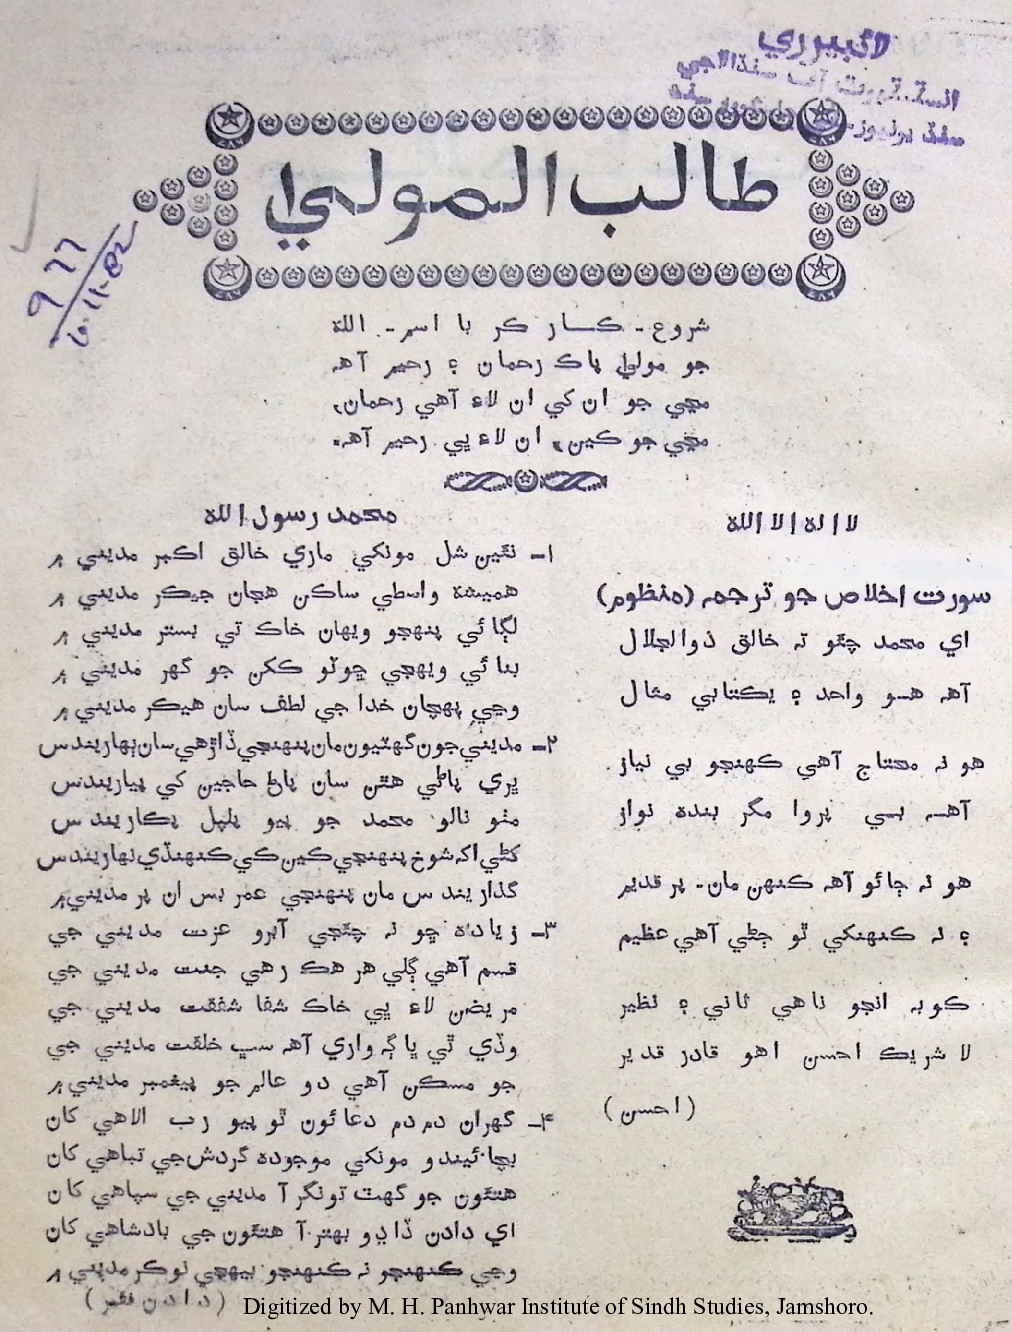 لائبريري
انسٽيٽيوٽ آف سنڌالاجي
طالب المولىٰ
شروع - ڪار ڪر با اسم - الله
جو مولىٰ پاڪ رحمان ۽ رحيم آهہ
مڃي جو ان کي ان لاءِ آهي رحمان،
مڃي جو ڪين، ان لاءِ ڀي رحيم آهہ.
لا اله الا الله
سورت اخلاص جو ترجمہ (منظوم)
اي محمد چئو تہ خالق ذوالجلال
آهہ هو واحد ۽ يڪتا بي مثال
هو نہ محتاج آهي ڪهنجو بي نياز
آهہ بي پروا مگر بنده نواز
هو نہ ڄائو آهہ ڪنهن مان - پر قديم
۽ نہ ڪنهنکي ٿو ڄڻي آهي عظيم
ڪو بہ انجو ناهي ثاني ۽ نظير
لا شريڪ احسن اهو قادر قدير
(احسن)
محمد رسول الله
۱- نئين شل مونکي ماري خالق اڪبر مديني ۾
هميشه واسطي ساڪن هجان جيڪر مديني ۾
لڳائي پنهجو ويهان خاڪ تي بستر مديني ۾
بنائي ويهجي ڇوٽو ڪکن جو گهر مديني ۾
وڃي پهچان خدا جي لطف سان هيڪر مديني ۾
۲- مديني جون گهٽيون مان پنهنجي ڏاڙهي سان ٻهاريندس
ڀري پاڻي هٿن سان پاڻ حاجين کي پياريندس
مٺو نالو محمد جو پيو پلپل پڪاريندس
کڻي اک شوخ پنهنجي ڪين ڪي ڪنهنڏي نهاريندس
گذاريندس مان پنهنجي عمر بس ان پر مديني ۾
۳- زياده ڇو نہ چئجي آبرو عزت مديني جي
قسم آهي ڳلي هر هڪ رهي جنت مديني جي
مريضن لاءِ ڀي خاڪ شفا شفقت مديني جي
وڏي ئي ڀاڳ واري آهہ سڀ خلقت مديني جي
جو مسڪن آهي دو عالم جو پيغمبر مديني ۾
۴- گهران دم دم دعائون ٿو پيو رب الاهي کان
بچائيندو مونکي موجوده گردش جي تباهي کان
هتئون جو گهٽ تونگر آ مديني جي سپاهي کان
اي دادن ڏاڍو بهتر آ هتئون جي بادشاهي کان
وڃي ڪنهنجو نہ ڪنهنجو بيهجي نوڪر مديني ۾
(دادن فقير)
Digitized by M. H. Panhwar Institute of Sindh Studies, Jamshoro.